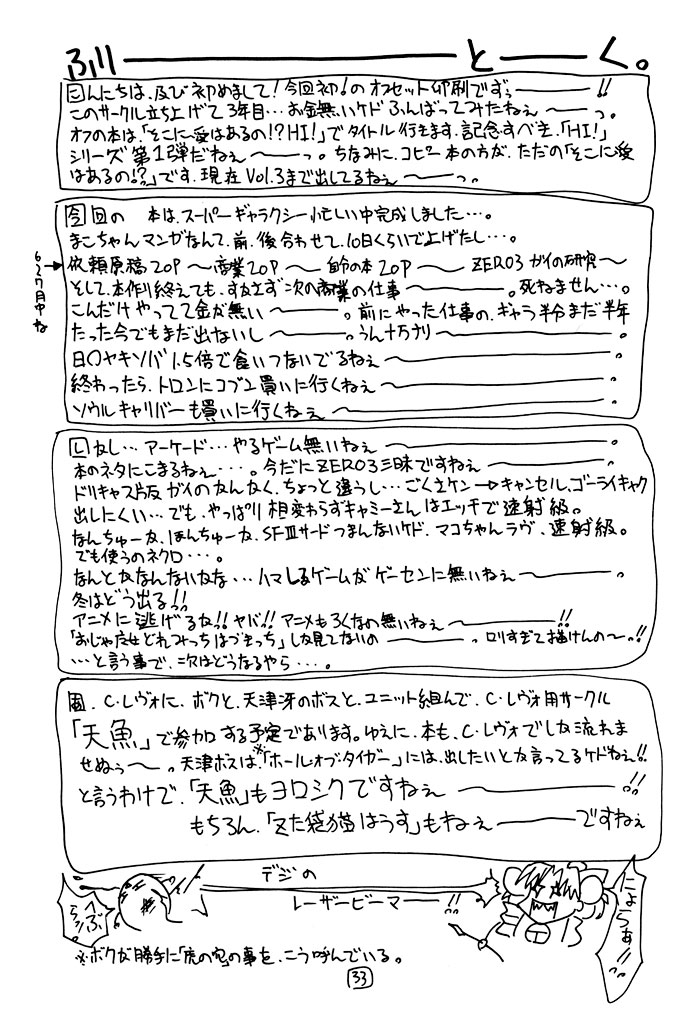 ふりーーーとーーく。
こんにちは、及び初めまして!今回初!のオフセット印刷ですぅーーー!!
このサークル立ち上げて3年目…お金無いケドふんばってみたねぇ〜ーっ。
オフの本は、「そこに愛はあるの!?HI!」でタイトル行きます、記念すべき、「HI!」
シリーズ第1弾だねぇ〜ーっ。ちなみに、コピー本の方が、ただの「そこに愛
はあるの!?」です、現在Vol.3まで出してるねぇ〜ーっ。
今回の 本は、スーパーギャラクシー忙しい中完成しました…。
まこちゃんマンガなんて、前、後合わせて、10日くらいで上げたし…。
6〜7月中ね→
依頼原稿20P〜商業20P〜自分の本20P〜ZERO3ガイの研究〜
そして、本作り終えても、すぐさま次の商業の仕事〜ーー。死ねません…。
こんだけやってて金が無い〜ーー。前にやった仕事の、ギャラ半分まだ半年
たった今でもまだ出ないし〜ーー。うん十万チリ〜ーー。
日〇ヤキソバ1.5倍で食いつないでるねぇ〜ーーー。
終わったら、トロンにコブン買いに行くねぇ〜ーーー。
ソウルキャリバーも買いに行くねぇ〜ーーー。
しなし…アーケード…やるゲーム無いねぇ〜ーーー。
本のネタにこまるねぇ…。今だにZERO3三昧ですねぇ〜ーーー。
ドリキャス版ガイのなんなく、ちょっと違うし…ごくさケン→キャンセル、ゴーライキャク
出しにくい…でも、やっぱり相変わらずキャミーさんはエッチで速射級。
なんちゅーか、ほんちゅーか、SFⅢサードつまんないケド、マコちゃんラヴ、速射級。
でも使うのネクロ…。
なんとかなんないかな…ハマしるゲームがゲーセンに無いねぇ〜ーーー。
冬はどう出る!!
アニメに逃げるな!!ヤバ!!アニメもろくなの無いねぇ〜ーーー!!
「おじゃ女せどれみっちはづきっち」しな見てないの〜ーー。ロリすぎて描けんの〜。!!
…と言う事で、次はどうなるやら…。
C・レヴォに、ボクと、天津冴のボスと、ユニット組んで、C・レヴォ用サークル
「天魚」で参加する予定であります。ゆえに、本も、C・レヴォでしな流れま
せぬぅ〜ー。天津ボスは、※「ホールオブタイガー」には、出したいとな言ってるケドねぇ!!
と言うわけで、「天魚」もヨロシクですねぇ〜ーーー!!
もちろん、「ぶた袋猫はうす」もねぇ〜ーーですねぇ
デジの
レーザービーマーー!!
へぶらっ!!
にょらぁ!!
※ボクが勝手に「虎の穴」の事を、こう呼んでいる。
33